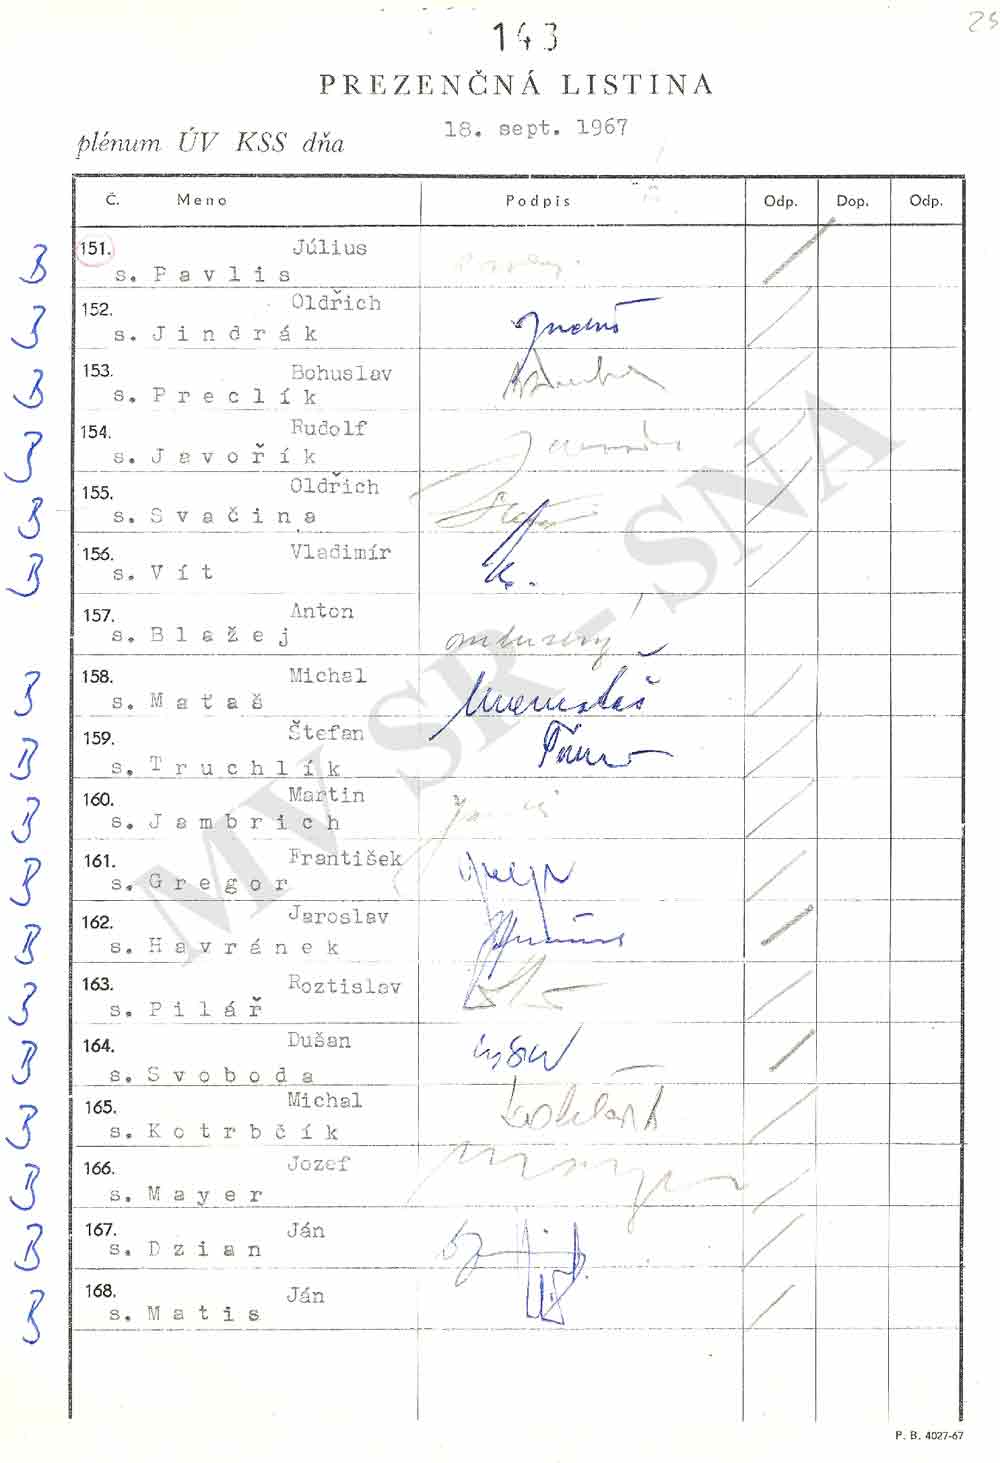 25
143
PREZENČNÁ LISTINA
plénum ÚV KSS dňa 18. sept. 1967
Č. Meno Podpis Odp. Dop. Odp.
B 151. Július
s. Pavlis
B 152. Oldřich
s. Jindrák
B 153. Bohuslav
s. Preclík
B 154. Rudolf
s. Javořík
B 155. Oldřich
s. Svačina
B 156. Vladimír
s. Vít
157. Anton
s. Blažej
B 158. Michal
s. Mataš
B 159. Štefan
s. Truchlík
B 160. Martin
s. Jambrich
B 161. František
s. Gregor
B 162. Jaroslav
s. Havránek
B 163. Roztislav
s. Pilář
B 164. Dušan
s. Svoboda
B 165. Michal
s. Kotrbčík
B 166. Jozef
s. Mayer
B 167. Ján
s. Dzian
B 168. Ján
s. Matis
MV SR - SNA
P. B. 4027-67